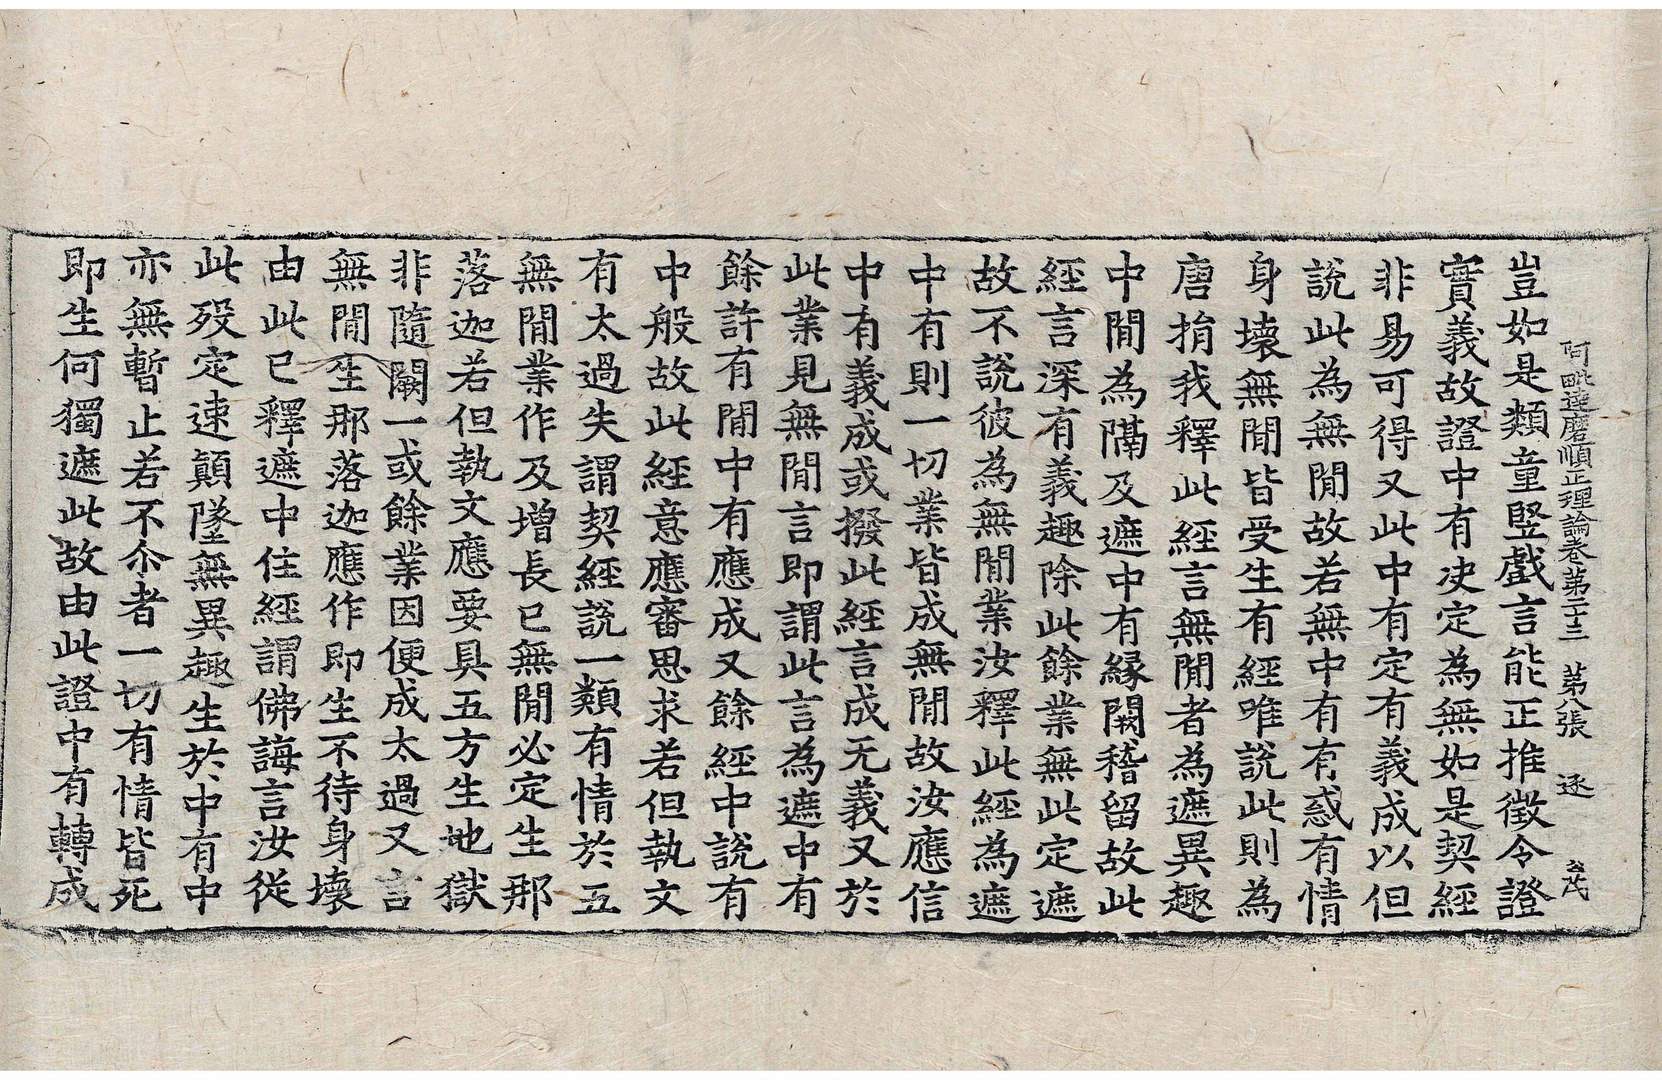 阿毗達磨順正理論卷第二十三　第八張　逐　
豈如是類童竪戲言能正推徵令證
實義故證中有决定為無如是契經
非易可得又此中有定有義成以但
說此為無閒故若無中有有惑有情
身壞無閒皆受生有經唯說此則為
唐捐我釋此經言無閒者為遮異趣
中閒為隔及遮中有緣闕稽留故此
經言深有義趣除此餘業無此定遮
故不說彼為無閒業汝釋此經為遮
中有則一切業皆成無閒故汝應信
中有義成或撥此經言成无義又於
此業見無閒言即謂此言為遮中有
餘許有閒中有應成又餘經中說有
中般故此經意應審思求若但執文
有太過失謂契經說一類有情於五
無閒業作及增長已無閒必定生那
落迦若但執文應要具五方生地獄
非隨闕一或餘業因便成太過又言
無閒生那落迦應作即生不待身壞
由此已釋遮中住經謂佛誨言汝從
此歿定速顚墜無異趣生於中有中
亦無暫止若不尒者一切有情皆死
即生何獨遮此故由此證中有轉成